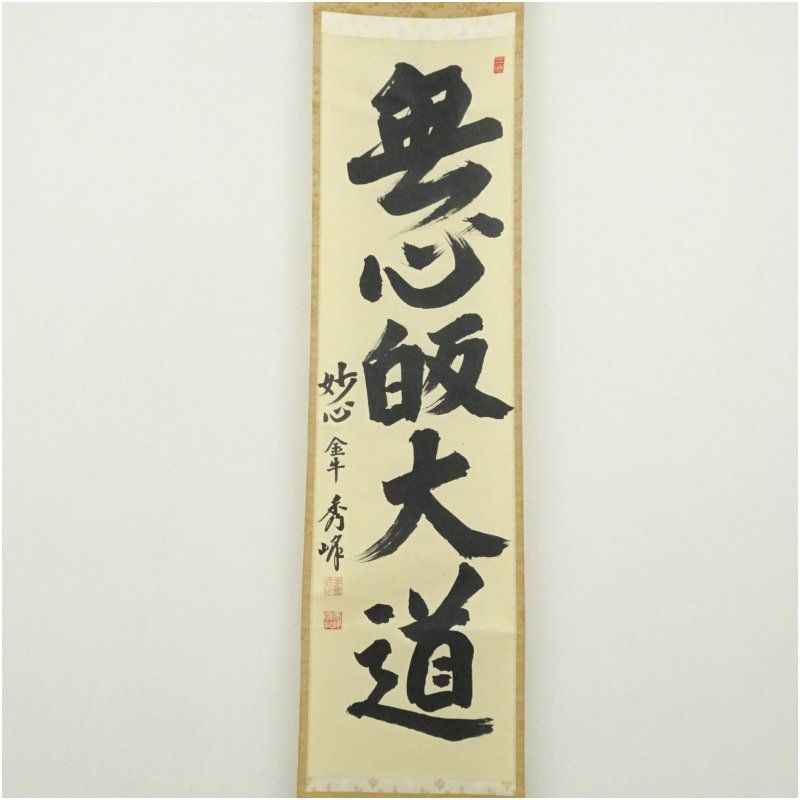 無心皈大道
妙心 金牛 秀峰